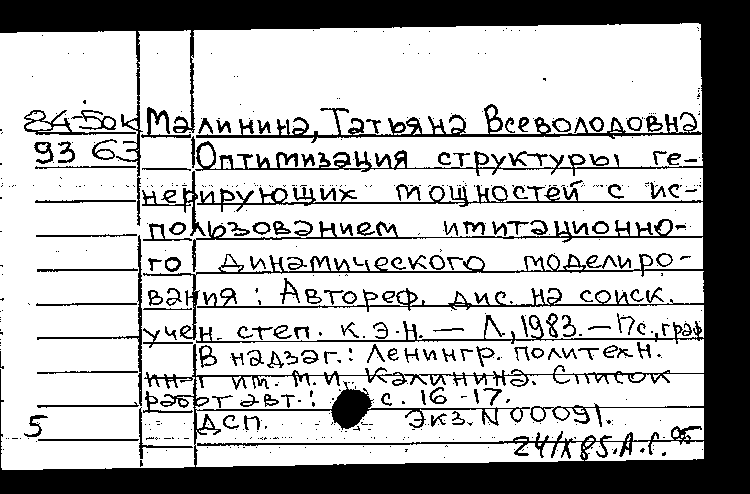 84-5ок Малинина, Татьяна Всеволодовна
93 63 Оптимизация структуры ге-
нерирующих мощностей с ис-
пользованием имитационно-
го динамического моделиро-
вания : Автореф. дис. на соиск.
учен. степ. к.э.н. — Л., 1983. — 17с., граф
В надзаг.: Ленингр. политехн.
ин-т им. М.И. Калинина. Список
работ авт.: с. 16-17.
5 ДСП. Экз. N 00091.
24/X 85. А.С.